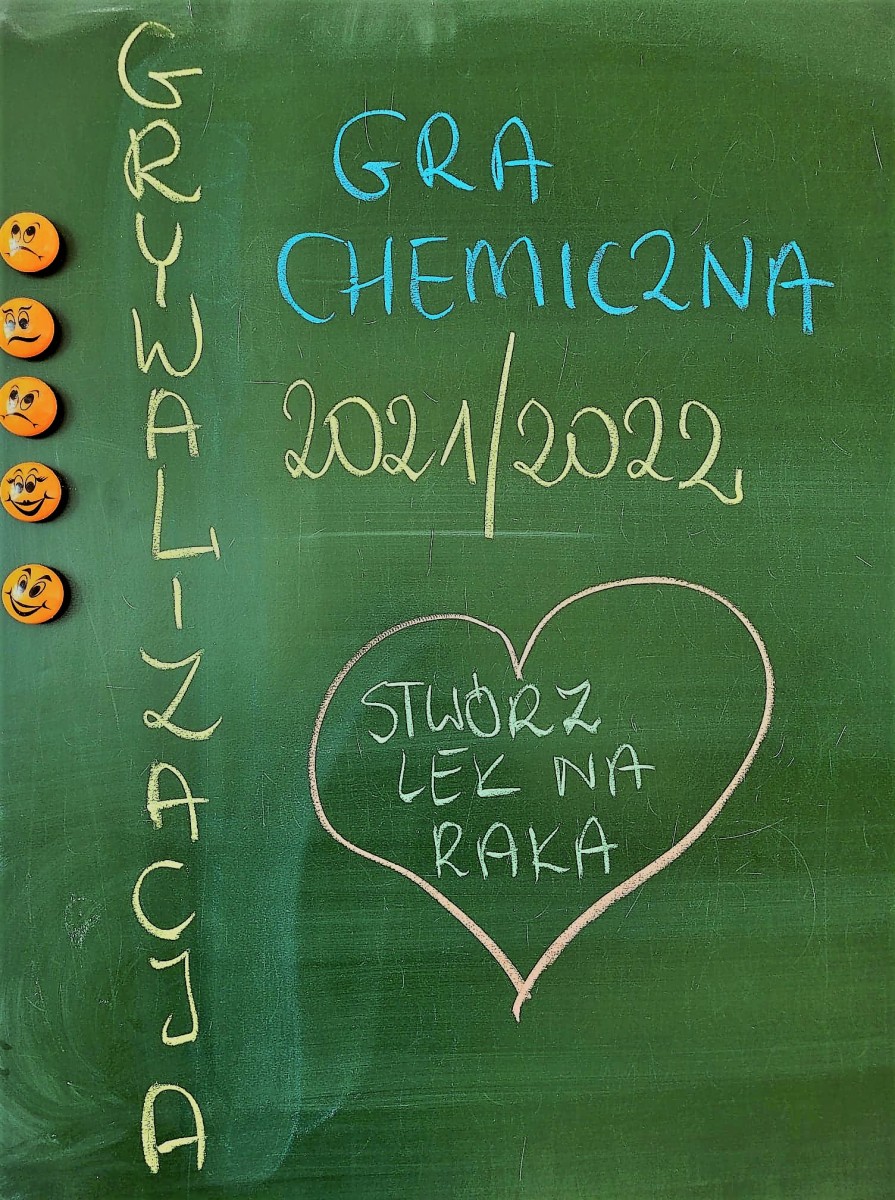 GRYWALIZACJA
GRA
CHEMICZNA
2021/2022
STWÓRZ
LEK NA
RAKA